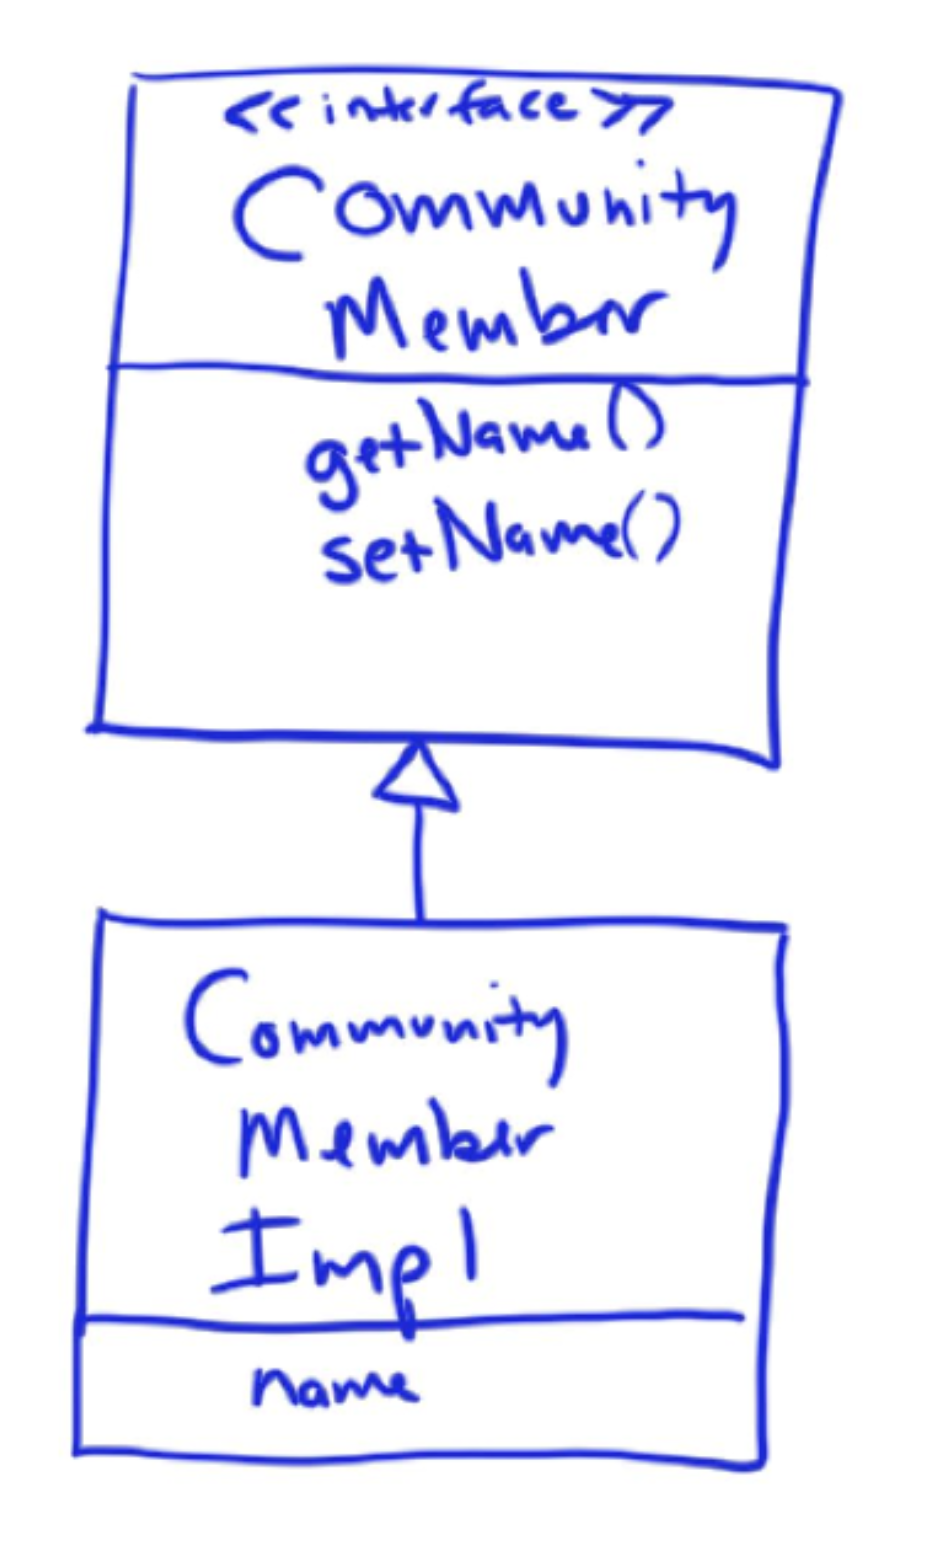 <<interface>>
Community
Member
getName()
setName()
Community
Member
Impl
name